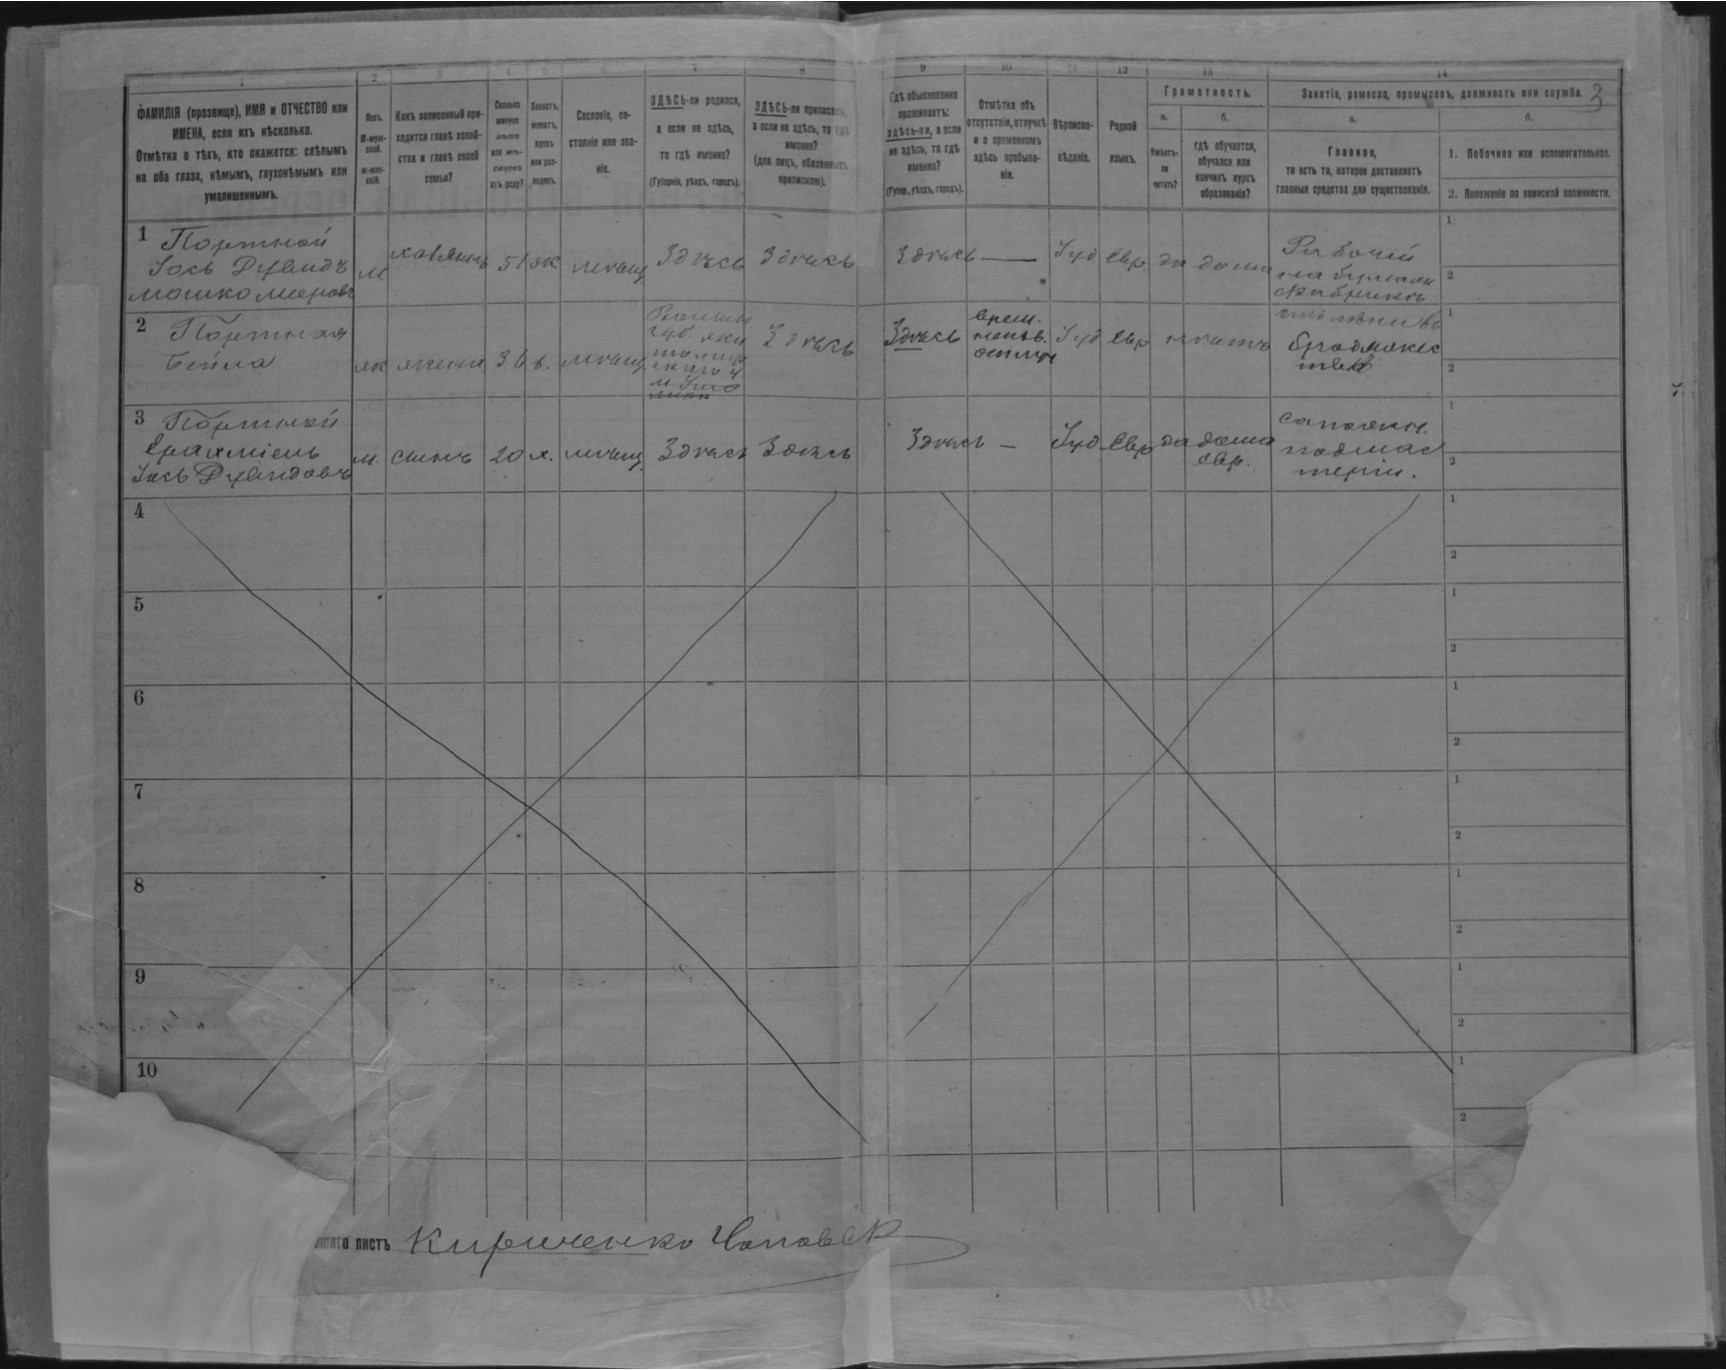 1 2 3 4 5 6 7 8 9 10 11 12 13 14
3
ФАМИЛІЯ (прозвище), ИМЯ и ОТЧЕСТВО или
ИМЕНА, если ихъ нѣсколько.
Отмѣтка о тѣхъ, кто окажется: слѣпымъ
на оба глаза, нѣмымъ, глухонѣмымъ или
умалишеннымъ.
Полъ.
М-муж-
ской.
Ж-жен-
скій.
Какъ записанный при-
ходится главѣ хозяй-
ства и главѣ своей
семьи?
Сколько
минуло
лѣтъ
или мѣ-
сяцевъ
отъ роду?
Холостъ,
женатъ,
вдовъ
или раз-
веденъ.
Сословіе, со-
стояніе или зва-
ніе.
ЗДѢСЬ-ли родился,
а если не здѣсь,
то гдѣ именно?
(Губернія, уѣздъ, городъ).
ЗДѢСЬ-ли приписанъ,
а если не здѣсь, то гдѣ
именно?
(для лицъ, обязанныхъ
припискою).
Гдѣ обыкновенно
проживаетъ:
здѣсь-ли, а если
не здѣсь, то гдѣ
именно?
(Губер., уѣздъ, городъ).
Отмѣтка объ
отсутствіи, отлучкѣ
и о временномъ
здѣсь пребыва-
ніи.
Вѣроиспо-
вѣданіе.
Родной
языкъ.
Грамотность.
а.
Умѣетъ-
ли
читать?
б.
гдѣ обучается,
обучался или
кончилъ курсъ
образованія?
Занятіе, ремесло, промыселъ, должность или служба.
а.
Главное,
то есть то, которое доставляетъ
главныя средства для существованія.
б.
1. Побочное или вспомогательное.
2. Положеніе по воинской повинности.
1 Портной
Іось Дувидъ
Мошко Мееровъ
м
хазяинъ
51
ж
мѣщ
Здѣсь
Здѣсь
Здѣсь —
Іуд
Евр
да
дома
Рабочій
на бумаж
фабрикѣ
1
2
2 Портная
Бейла
ж
жена
36
з.
мѣщ.
Волын
губ.
Здѣсь
Здѣсь
врем.
отлуч
Іуд
Евр
нѣтъ
1
2
3 Портной
Ерахміель
Іось Дувидовъ
м.
сынъ
20
х.
мѣщ
Здѣсь
Здѣсь
Здѣсь —
Іуд
Евр
да
дома
Евр.
сапожн.
подмас
терій.
1
2
4
1
2
5
1
2
6
1
2
7
1
2
8
1
2
9
1
2
10
1
2
листъ Кириченко